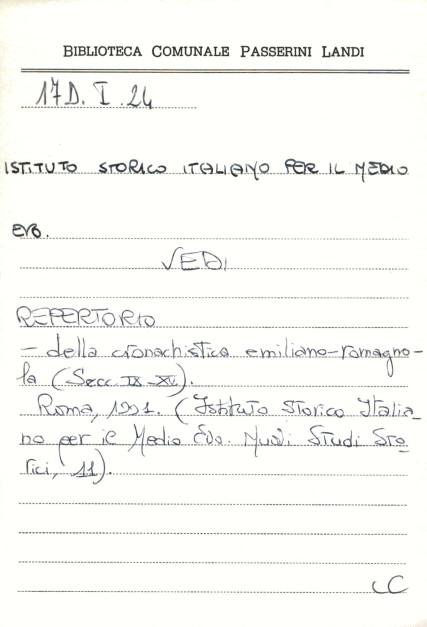 BIBLIOTECA COMUNALE PASSERINI LANDI
17D. I. 24
ISTITUTO STORICO ITALIANO PER IL MEDIO
EVO.
VEDI
REPERTORIO
- della cronachistica emiliano-romagno-
la (Secc. IX-XV).
Roma, 1991. (Istituto Storico Italia-
no per il Medio Evo. Nuovi Studi Sto-
rici, 11).
CC